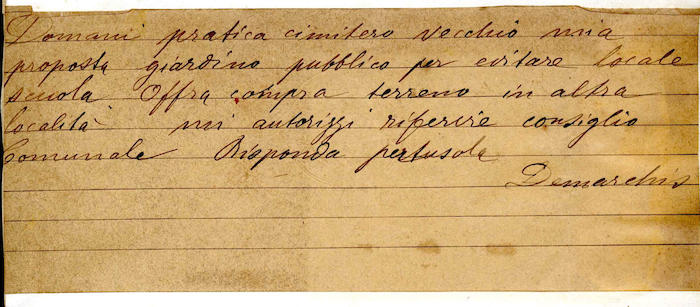 Domani pratica cimitero vecchio mia
proposta giardino pubblico per evitare locale
scuola Offra compra terreno in altra
località mi autorizzi riferire consiglio
Comunale Risponda pertusola
Demarchis